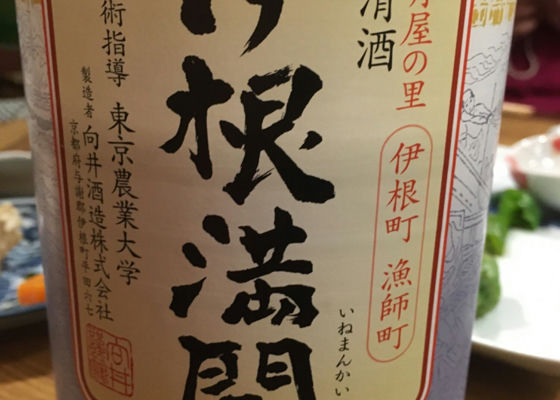 屋の里
伊根町 漁師町
清酒
根満
いねまんかい
術指導 東京農業大学
製造者 向井酒造株式会社
京都府与謝郡伊根町平田六七
向井